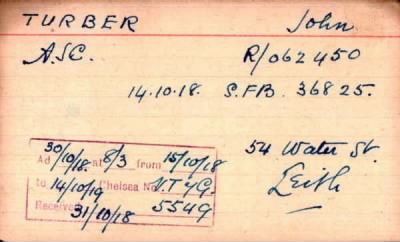 TURBER John
A.S.C. R/062450
14.10.18. S.FB. 36825.
54 Water St.
Leith
30/10/18.
Ad at 8/3 from 15/10/18
to 14/10/19 Chelsea No.
Received 31/10/18 5549